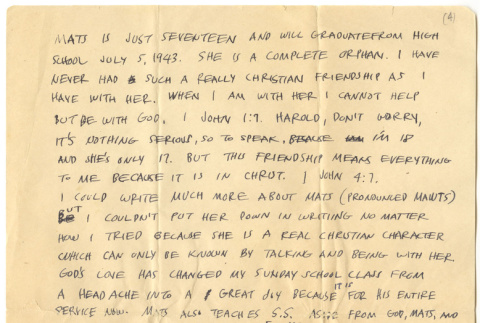 (4)
MATS IS JUST SEVENTEEN AND WILL GRADUATE FROM HIGH
SCHOOL JULY 5, 1943. SHE IS A COMPLETE ORPHAN. I HAVE
NEVER HAD SUCH A REALLY CHRISTIAN FRIENDSHIP AS I
HAVE WITH HER. WHEN I AM WITH HER I CANNOT HELP
BUT BE WITH GOD. I JOHN 1:7. HAROLD, DON'T WORRY,
IT'S NOTHING SERIOUS, SO TO SPEAK, BECAUSE I'M 18
AND SHE'S ONLY 17. BUT THIS FRIENDSHIP MEANS EVERYTHING
TO ME BECAUSE IT IS IN CHRIST. I JOHN 4:7.
I COULD WRITE MUCH MORE ABOUT MATS (PRONOUNCED MAUTS)
BUT I COULDN'T PUT HER DOWN IN WRITING NO MATTER
HOW I TRIED BECAUSE SHE IS A REAL CHRISTIAN CHARACTER
WHICH CAN ONLY BE KNOWN BY TALKING AND BEING WITH HER.
GOD'S LOVE HAS CHANGED MY SUNDAY SCHOOL CLASS FROM
A HEADACHE INTO A GREAT JOY BECAUSE IT IS FOR HIS ENTIRE
SERVICE NOW. MATS ALSO TEACHES S.S. ASIDE FROM GOD, MATS, AND